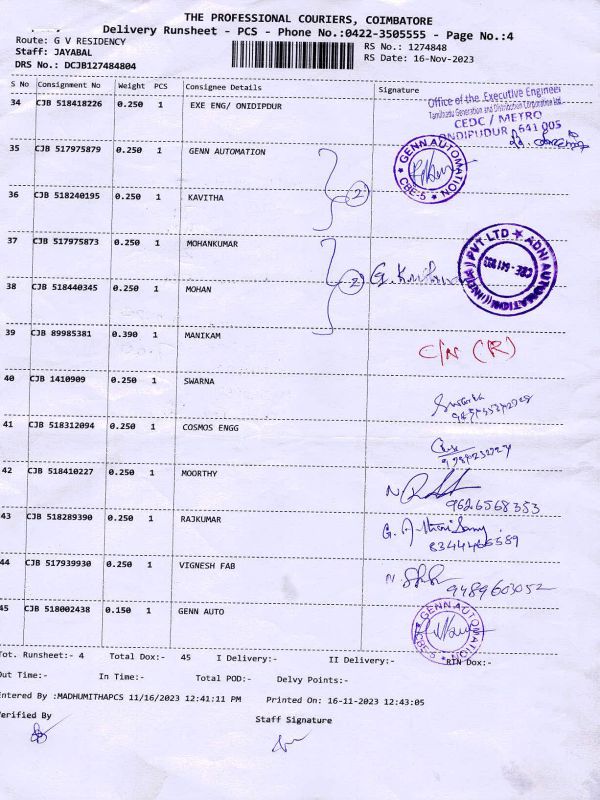 THE PROFESSIONAL COURIERS, COIMBATORE
Delivery Runsheet - PCS - Phone No.:0422-3505555 - Page No.:4
Route: G V RESIDENCY
RS No.: 1274848
Staff: JAYABAL
RS Date: 16-Nov-2023
DRS No.: DCJB127484804
S No Consignment No Weight PCS Consignee Details Signature
34 CJB 518418226 0.250 1 EXE ENG/ ONIDIPDUR
Office of the Executive Engineer
Tamilnadu Generation and Distribution Corporation Ltd.
CEDC / METRO
ONDIPUDUR 641 005
35 CJB 517975879 0.250 1 GENN AUTOMATION
GENN AUTOMATION
CBE-5
36 CJB 518240195 0.250 1 KAVITHA
2
37 CJB 517975873 0.250 1 MOHANKUMAR
ADNI AUTOMATION (INDIA) PVT LTD
CBE - 641 003
38 CJB 518440345 0.250 1 MOHAN
2
39 CJB 89985381 0.390 1 MANIKAM
C/N (R)
40 CJB 1410909 0.250 1 SWARNA
41 CJB 518312094 0.250 1 COSMOS ENGG
42 CJB 518410227 0.250 1 MOORTHY
9626568353
43 CJB 518289390 0.250 1 RAJKUMAR
8344466589
44 CJB 517939930 0.250 1 VIGNESH FAB
9489603052
45 CJB 518002438 0.150 1 GENN AUTO
GENN AUTOMATION
CBE-5
Tot. Runsheet:- 4 Total Dox:- 45 I Delivery:- II Delivery:- RTN Dox:-
Out Time:- In Time:- Total POD:- Delvy Points:-
Entered By :MADHUMITHAPCS 11/16/2023 12:41:11 PM Printed On: 16-11-2023 12:43:05
Verified By
Staff Signature